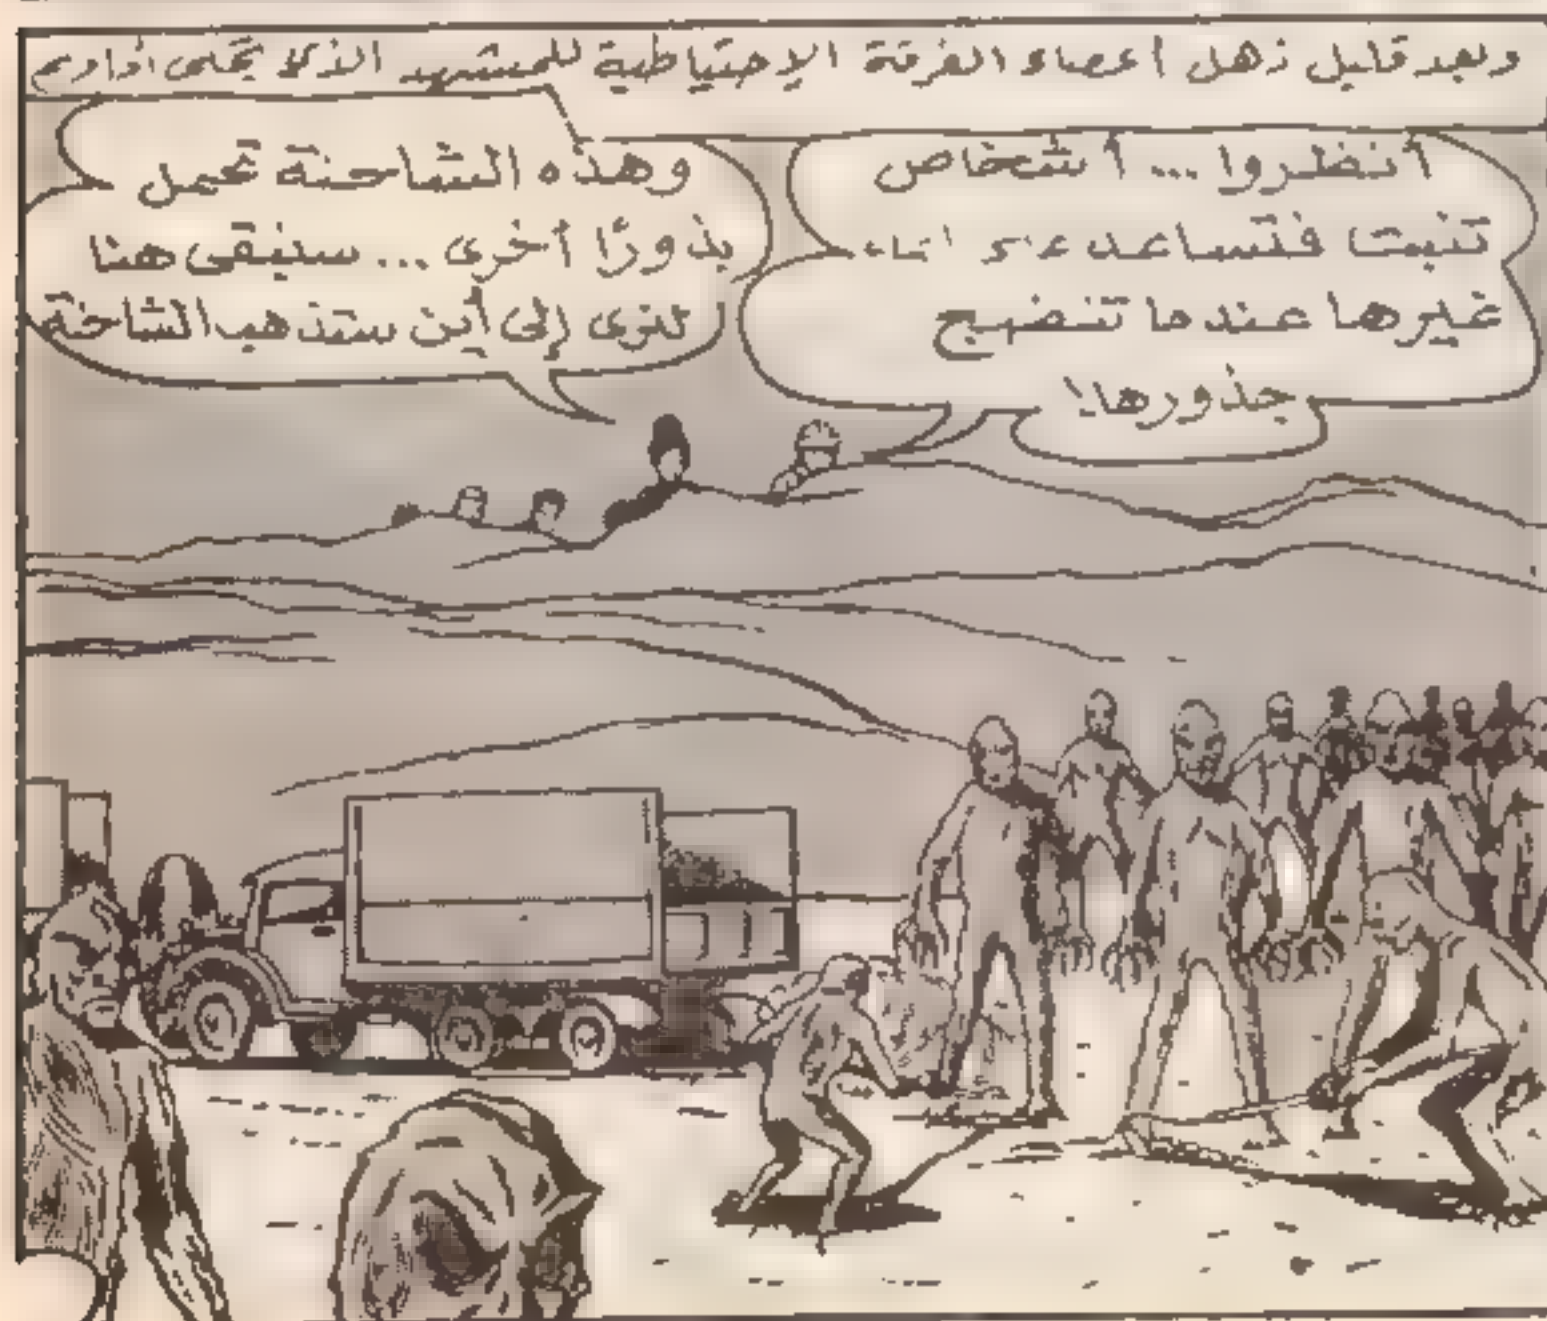 وبعد قليل ذهل أعضاء الفرقة الإحتياطية للمشهد الذي تجلى أمامهم
أنظروا... أشخاص
تنبت فتساعد على إنماء
غيرها عندما تنضج
جذورها!
وهذه الشاحنة تحمل
بذورًا أخرى... سنبقى هنا
لنرى إلى أين ستذهب الشاحنة